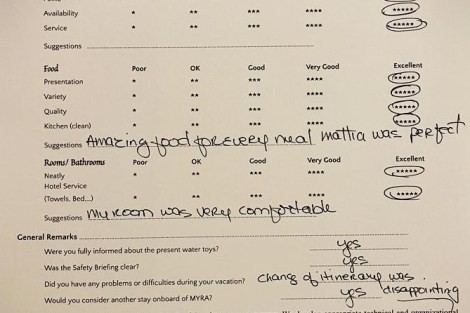 Availability * ** *** **** *****
Service * ** *** **** *****
Suggestions
Food Poor OK Good Very Good Excellent
Presentation * ** *** **** *****
Variety * ** *** **** *****
Quality * ** *** **** *****
Kitchen (clean) * ** *** **** *****
Suggestions Amazing food for every meal mattia was perfect
Rooms/ Bathrooms Poor OK Good Very Good Excellent
Neatly * ** *** **** *****
Hotel Service
(Towels, Bed...) * ** *** **** *****
Suggestions my room was very comfortable
General Remarks
Were you fully informed about the present water toys? yes
Was the Safety Briefing clear? yes
Did you have any problems or difficulties during your vacation? change of itinerary was
disappointing
Would you consider another stay onboard of MYRA? yes